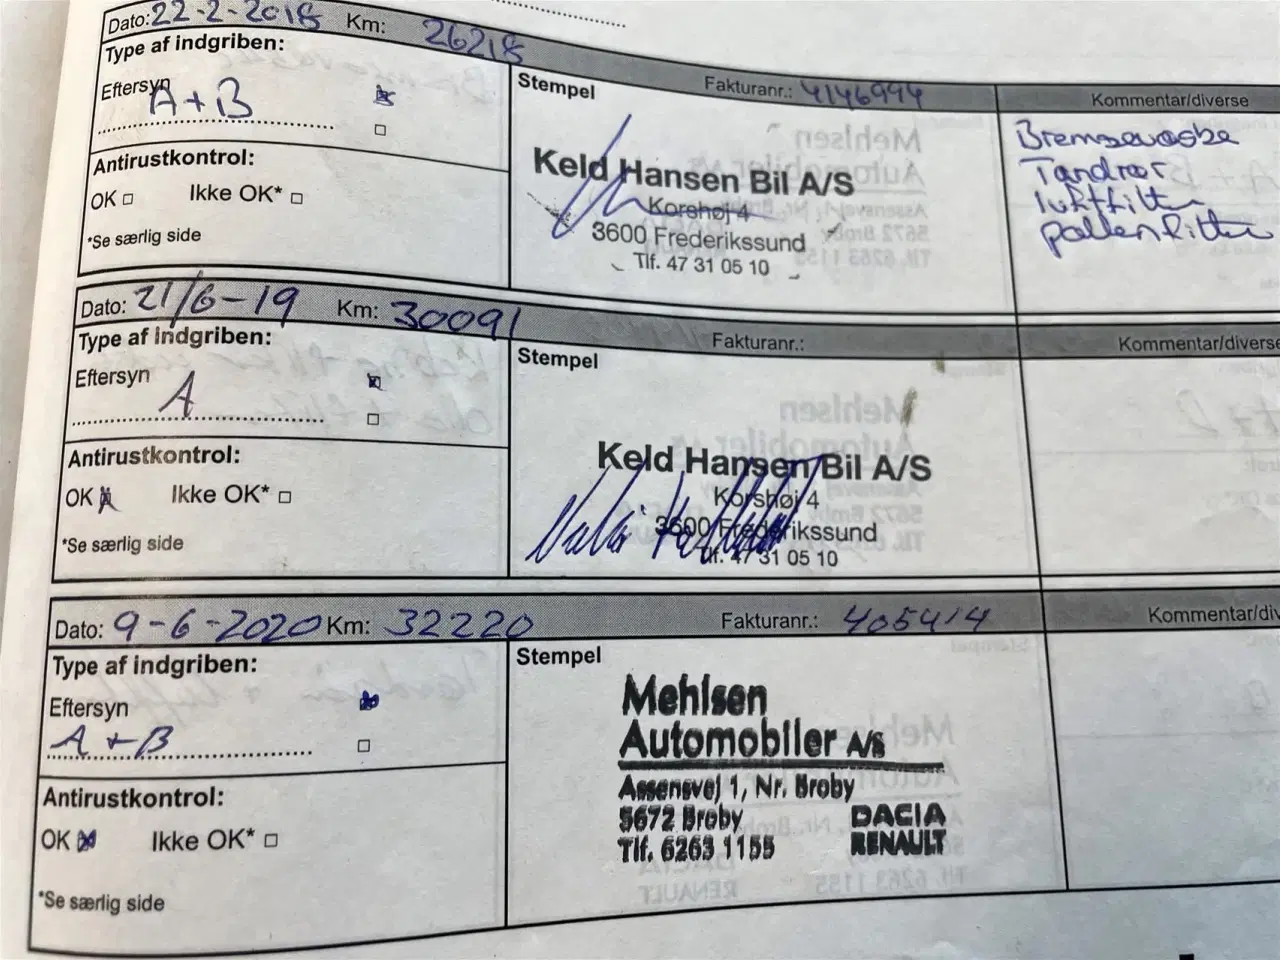 Dato: 22-2-2018 Km: 26218
Type af indgriben:
Stempel
Fakturanr.: 4146994
Kommentar/diverse
Eftersyn A+B
Antirustkontrol:
OK Ikke OK*
*Se særlig side
Keld Hansen Bil A/S
Korshøj 4
3600 Frederikssund
Tlf. 47 31 05 10
Bremsevæske
Tandrør
luftfilter
pollenfilter
Dato: 21/6-19 Km: 30091
Type af indgriben:
Stempel
Fakturanr.:
Kommentar/diverse
Eftersyn A
Antirustkontrol:
OK Ikke OK*
*Se særlig side
Keld Hansen Bil A/S
Korshøj 4
3600 Frederikssund
Tlf. 47 31 05 10
Dato: 9-6-2020 Km: 32220
Fakturanr.: 405414
Kommentar/div
Type af indgriben:
Stempel
Eftersyn
A+B
Antirustkontrol:
OK Ikke OK*
*Se særlig side
Mehlsen
Automobiler A/S
Assensvej 1, Nr. Broby
5672 Broby DACIA
Tlf. 6263 1155 RENAULT